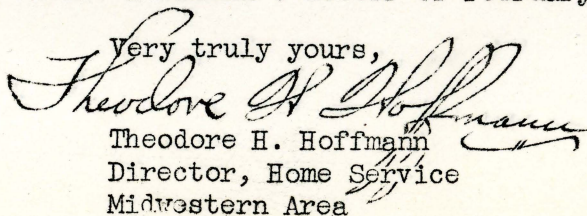 Very truly yours,
Theodore H Hoffmann
Theodore H. Hoffmann
Director, Home Service
Midwestern Area